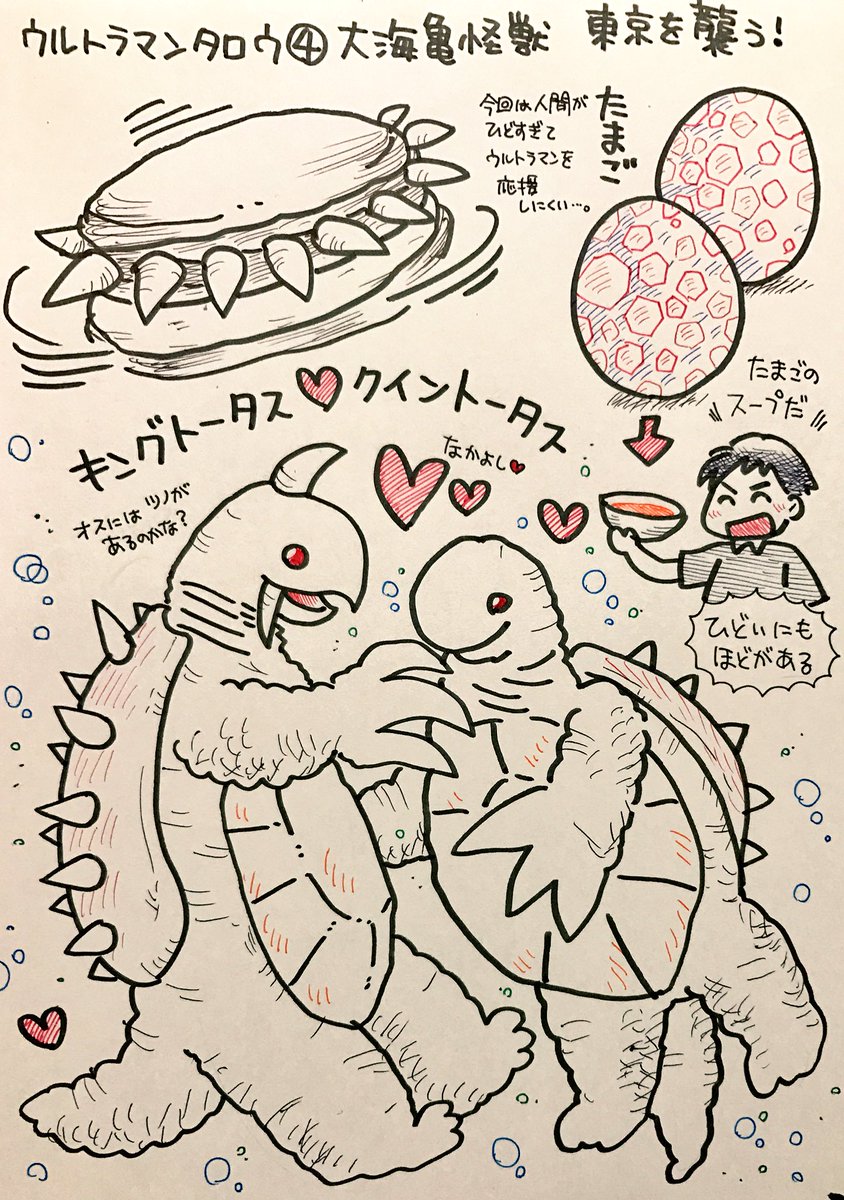 ウルトラマンタロウ④大海亀怪獣 東京を襲う!
今回は人間が
ひどすぎて
ウルトラマンを
応援
しにくい…。
たまご
たまごの
スープだ
キングトータス♥クイントータス
なかよし♥
オスには ツノが
あるのかな?
ひどいにも
ほどがある